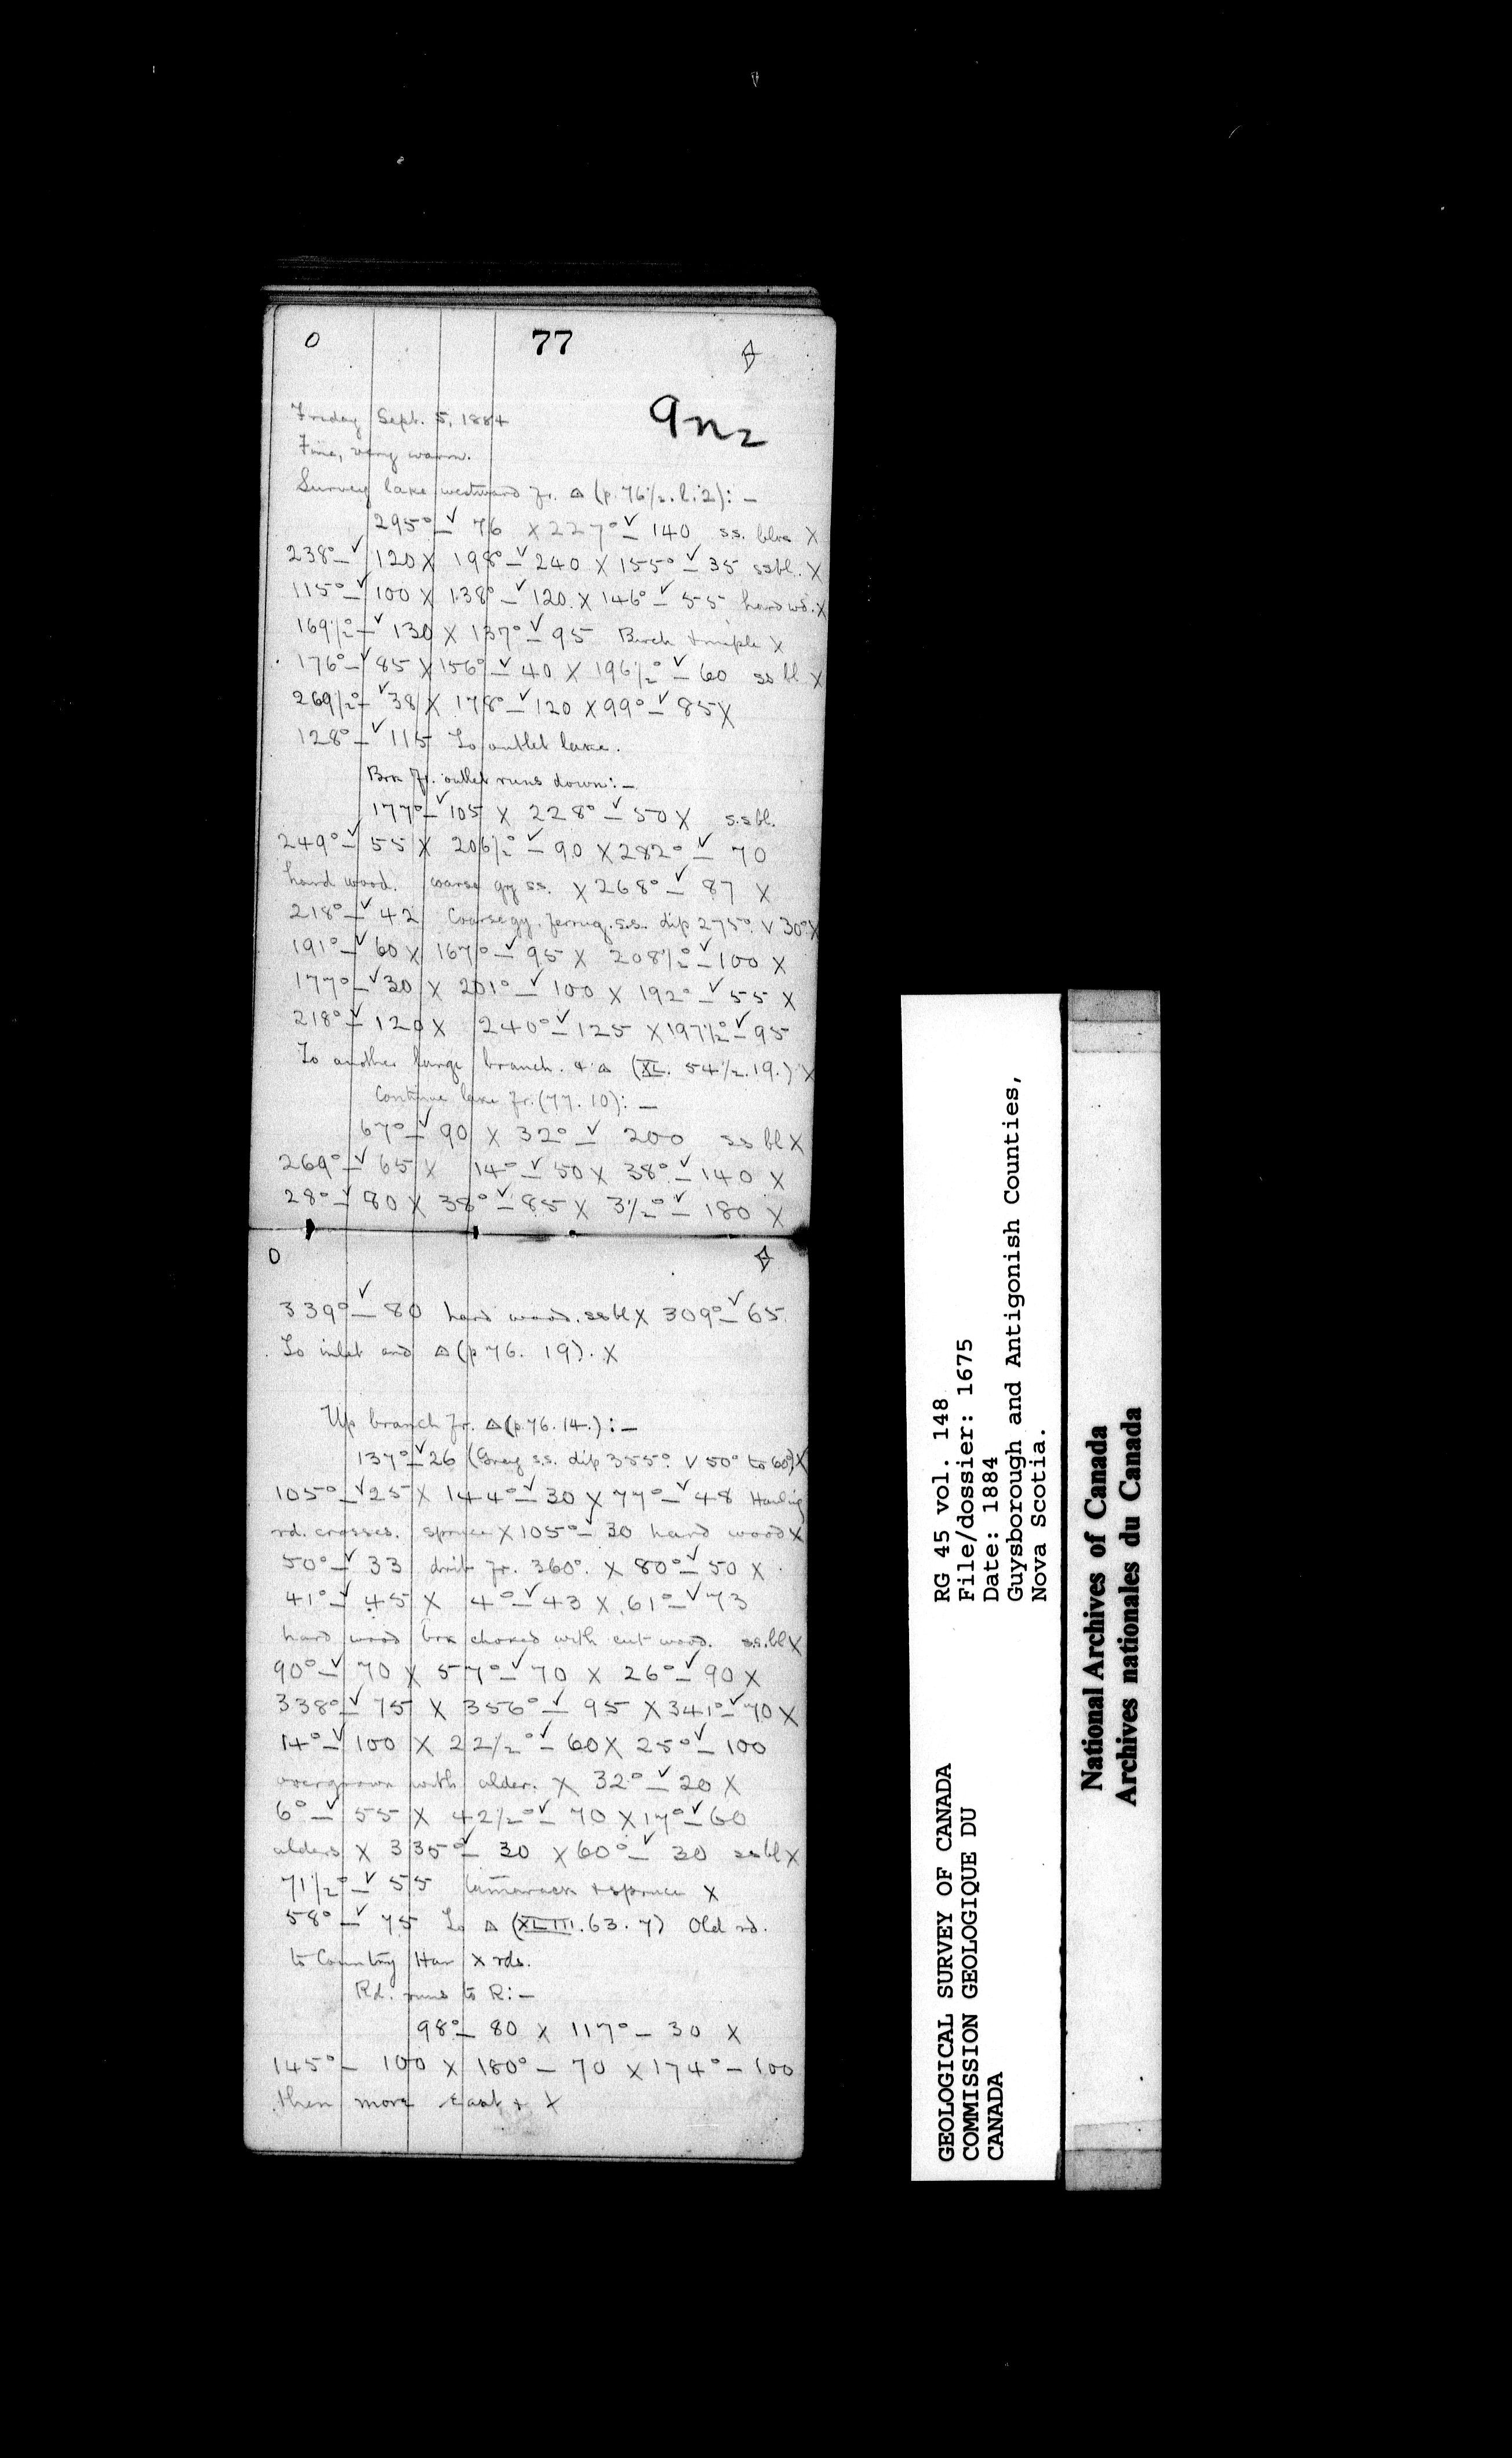 0 77
9n2
Friday Sept. 5, 1884
Fine, very warm.
Survey lake westward fr. △ (p. 76 1/2. l. 2): —
295° ✓— 76 X 227° ✓— 140 s.s. blrs X
238° —✓ 120 X 198° —✓ 240 X 155° ✓— 35 ssbl. X
115° —✓ 100 X 138° —✓ 120. X 146° —✓ 55 hard wd. X
169 1/2° —✓ 130 X 137° ✓— 95 Birch + maple X
176° —✓ 85 X 156° —✓ 40 X 196 1/2° ✓— 60 ss bl. X
269 1/2° —✓ 38 X 178° —✓ 120 X 99° —✓ 85 X
128° —✓ 115 To outlet lake.
Brk fr. outlet runs down: —
177° —✓ 105 X 228° —✓ 50 X s.s bl.
249° —✓ 55 X 206 1/2° ✓— 90 X 282° ✓— 70
hard wood. coarse gy ss. X 268° —✓ 87 X
218° —✓ 42 Coarse gy. ferrug. s.s. dip 275°. V 30° X
191° —✓ 60 X 167° —✓ 95 X 208 1/2° ✓— 100 X
177° —✓ 30 X 201° —✓ 100 X 192° —✓ 55 X
218° —✓ 120 X 240° ✓— 125 X 197 1/2° ✓— 95
To another large branch. + △ (XL. 54 1/2. 19.) X
Continue lake fr. (77. 10): —
67° —✓ 90 X 32° —✓ 200 ss bl X
269° —✓ 65 X 14° —✓ 50 X 38° —✓ 140 X
28° —✓ 80 X 38° ✓— 85 X 3 1/2° ✓— 180 X
0
339° ✓— 80 hard wood. ssbl X 309° —✓ 65.
To inlet and △ (p 76. 19). X
Up branch fr. △ (p. 76. 14.): —
137° ✓— 26 (Grey s.s. dip 355°. V 50° to 60°) X
105° —✓ 25 X 144° —✓ 30 X 77° —✓ 48 Hauling
rd. crosses. spruce X 105° ✓— 30 hard wood X
50° —✓ 33 drib fr. 360°. X 80° —✓ 50 X
41° —✓ 45 X 4° —✓ 43 X 61° —✓ 73
hard wood brk choked with cut wood. s.s. bl X
90° —✓ 70 X 57° —✓ 70 X 26° —✓ 90 X
338° —✓ 75 X 356° —✓ 95 X 341° —✓ 70 X
14° —✓ 100 X 22 1/2° ✓— 60 X 25° ✓— 100
overgrown with alder. X 32° —✓ 20 X
6° —✓ 55 X 42 1/2° ✓— 70 X 17° ✓— 60
alders X 335° ✓— 30 X 60° —✓ 30 ssbl X
71 1/2° —✓ 55 tamarack + spruce X
58° —✓ 75 To △ (XLIII. 63. 7) Old rd.
to Country Har X rds.
Rd. runs to R: —
98° — 80 X 117° — 30 X
145° — 100 X 180° — 70 X 174° — 100
then more East + X
GEOLOGICAL SURVEY OF CANADA
COMMISSION GEOLOGIQUE DU
CANADA
RG 45 vol. 148
File/dossier: 1675
Date: 1884
Guysborough and Antigonish Counties,
Nova Scotia.
National Archives of Canada
Archives nationales du Canada